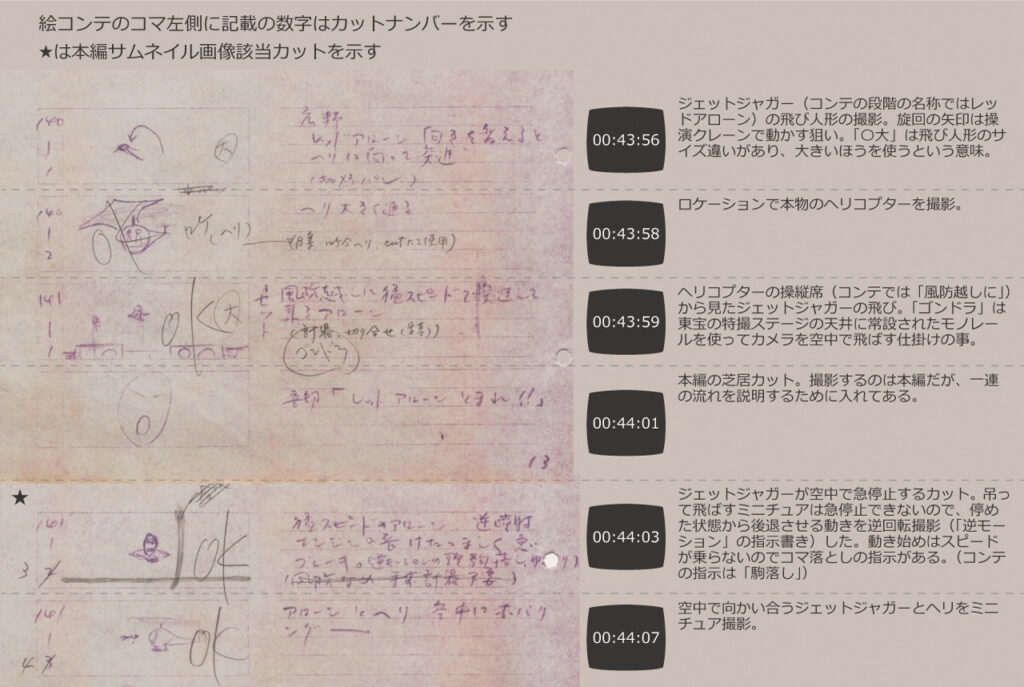 絵コンテのコマ左側に記載の数字はカットナンバーを示す
★は本編サムネイル画像該当カットを示す
140
1
1
広野
レッドアローン 向きを変えると
ヘリに向って発進
大
00:43:56
ジェットジャガー（コンテの段階の名称ではレッ
ドアローン）の飛び人形の撮影。旋回の矢印は操
演クレーンで動かす狙い。「○大」は飛び人形のサ
イズ違いがあり、大きいほうを使うという意味。
140
1
2
ロケ（ヘリ）
ヘリ大きく通る
00:43:58
ロケーションで本物のヘリコプターを撮影。
141
1
1
OK
大
セット
風防越しに猛スピードで
アローン
ゴンドラ
00:43:59
ヘリコプターの操縦席（コンテでは「風防越しに」）
から見たジェットジャガーの飛び。「ゴンドラ」は
東宝の特撮ステージの天井に常設されたモノレー
ルを使ってカメラを空中で飛ばす仕掛けの事。
吾郎「レッドアローン とまれ!!」
13
00:44:01
本編の芝居カット。撮影するのは本編だが、一連
の流れを説明するために入れてある。
★
141
1
3
OK
猛スピードのアローン 逆噴射
00:44:03
ジェットジャガーが空中で急停止するカット。吊っ
て飛ばすミニチュアは急停止できないので、停め
た状態から後退させる動きを逆回転撮影（「逆モー
ション」の指示書き）した。動き始めはスピード
が乗らないのでコマ落としの指示がある。（コンテ
の指示は「駒落し」）
141
1
4
OK
アローンとヘリ 空中にホバリ
ング
00:44:07
空中で向かい合うジェットジャガーとヘリをミニ
チュア撮影。